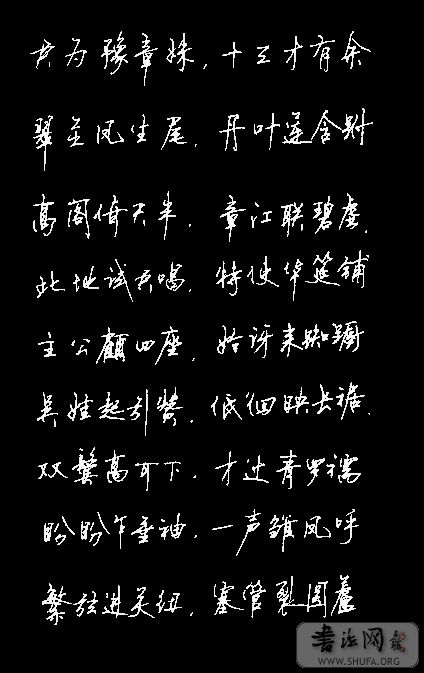 君为豫章姝，十三才有余
翠茁凤生尾，丹叶莲含跗
高阁倚天半，章江联碧虚.
此地试君唱，特使华筵铺
主公顾四座，始讶来踟蹰
吴娃起引赞，低徊映长裾.
双鬟高可下，才过青罗襦
盼盼乍垂袖，一声雏凤呼
繁弦迸关纽，塞管裂圆芦
書法网
WWW.SHUFA.ORG